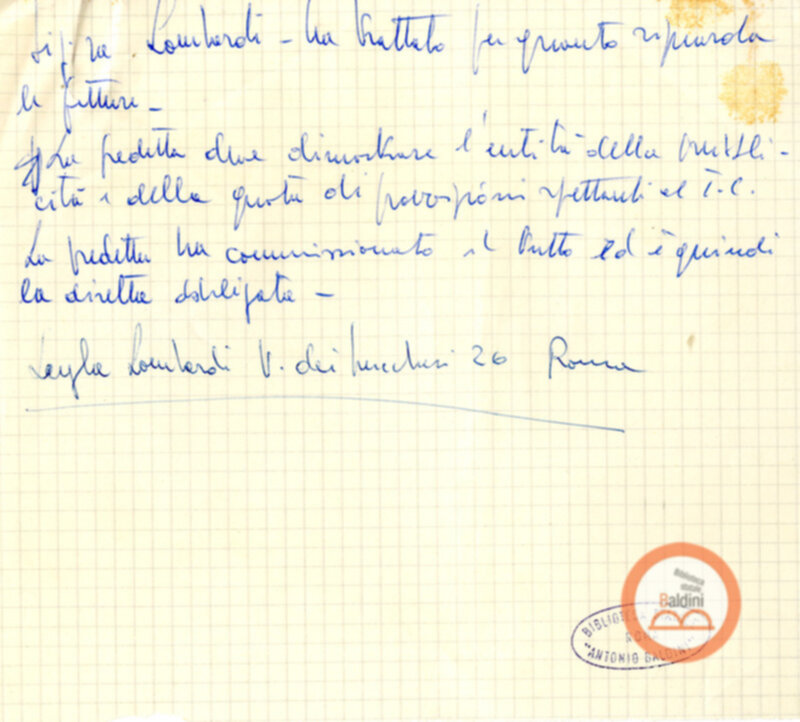 Sig.ra Lombardi - ha trattato per quanto riguarda
le fatture -
La predetta deve dimostrare l'entità della pubbli-
cità e della quota di spettanti al T.C.
La predetta ha commissionato il tutto ed è quindi
la diretta obbligata -
Leyla Lombardi V. dei 26 Roma
Biblioteca
statale
Baldini
BIBLIOTECA
ROMA
"ANTONIO BALDINI"